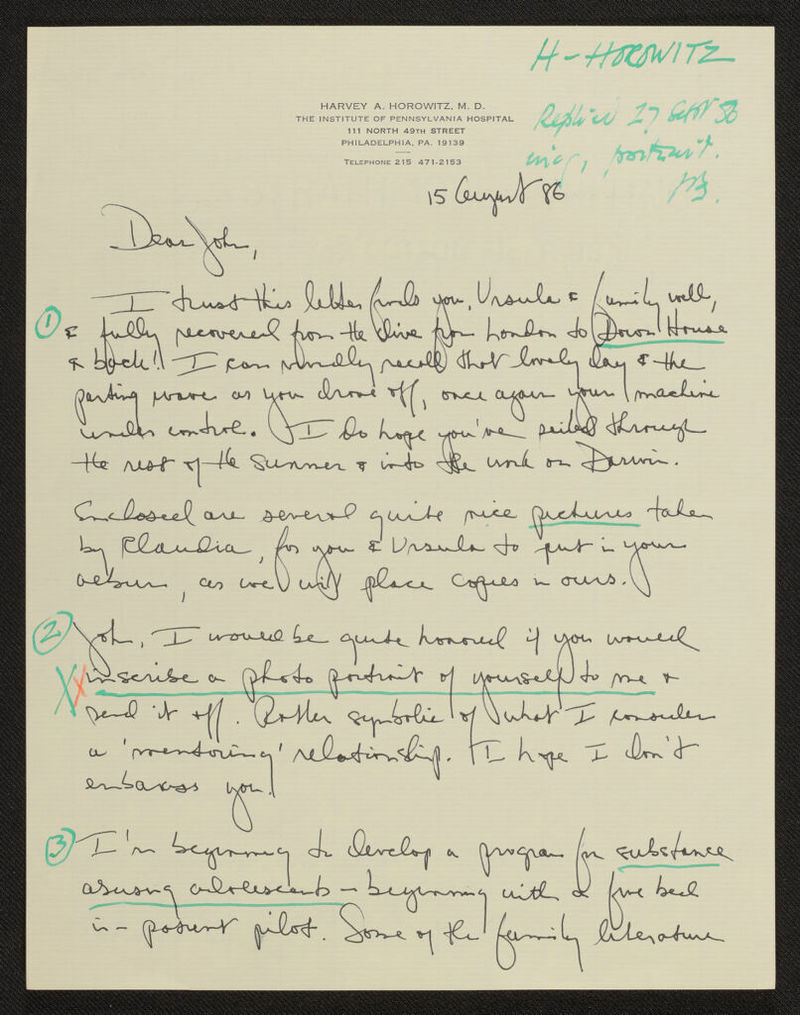 H - HOROWITZ
Replied 27 Sept 86
enc, portrait.
JB.
HARVEY A. HOROWITZ, M. D.
THE INSTITUTE OF PENNSYLVANIA HOSPITAL
111 NORTH 49TH STREET
PHILADELPHIA, PA. 19139
TELEPHONE 215 471-2153
15 August 86
Dear John,
I trust this letter finds you, Ursula & family well,
1 & fully recovered from the drive from London to Down House
& back! I can vividly recall that lovely day & the
parting wave as you drove off, once again your machine
under control. I do hope you've sailed through
the rest of the summer & into the work on Darwin.
Enclosed are several quite nice pictures taken
by Claudia, for you & Ursula to put in your
album, as we will place copies in ours.
2 John, I would be quite honored if you would
inscribe a photo portrait of yourself to me &
send it off. Rather symbolic of what I consider
a 'mentoring' relationship. I hope I don't
embarass you!
3 I'm beginning to develop a program for substance
abusing adolescents - beginning with a five bed
in-patient pilot. Some of the family literature